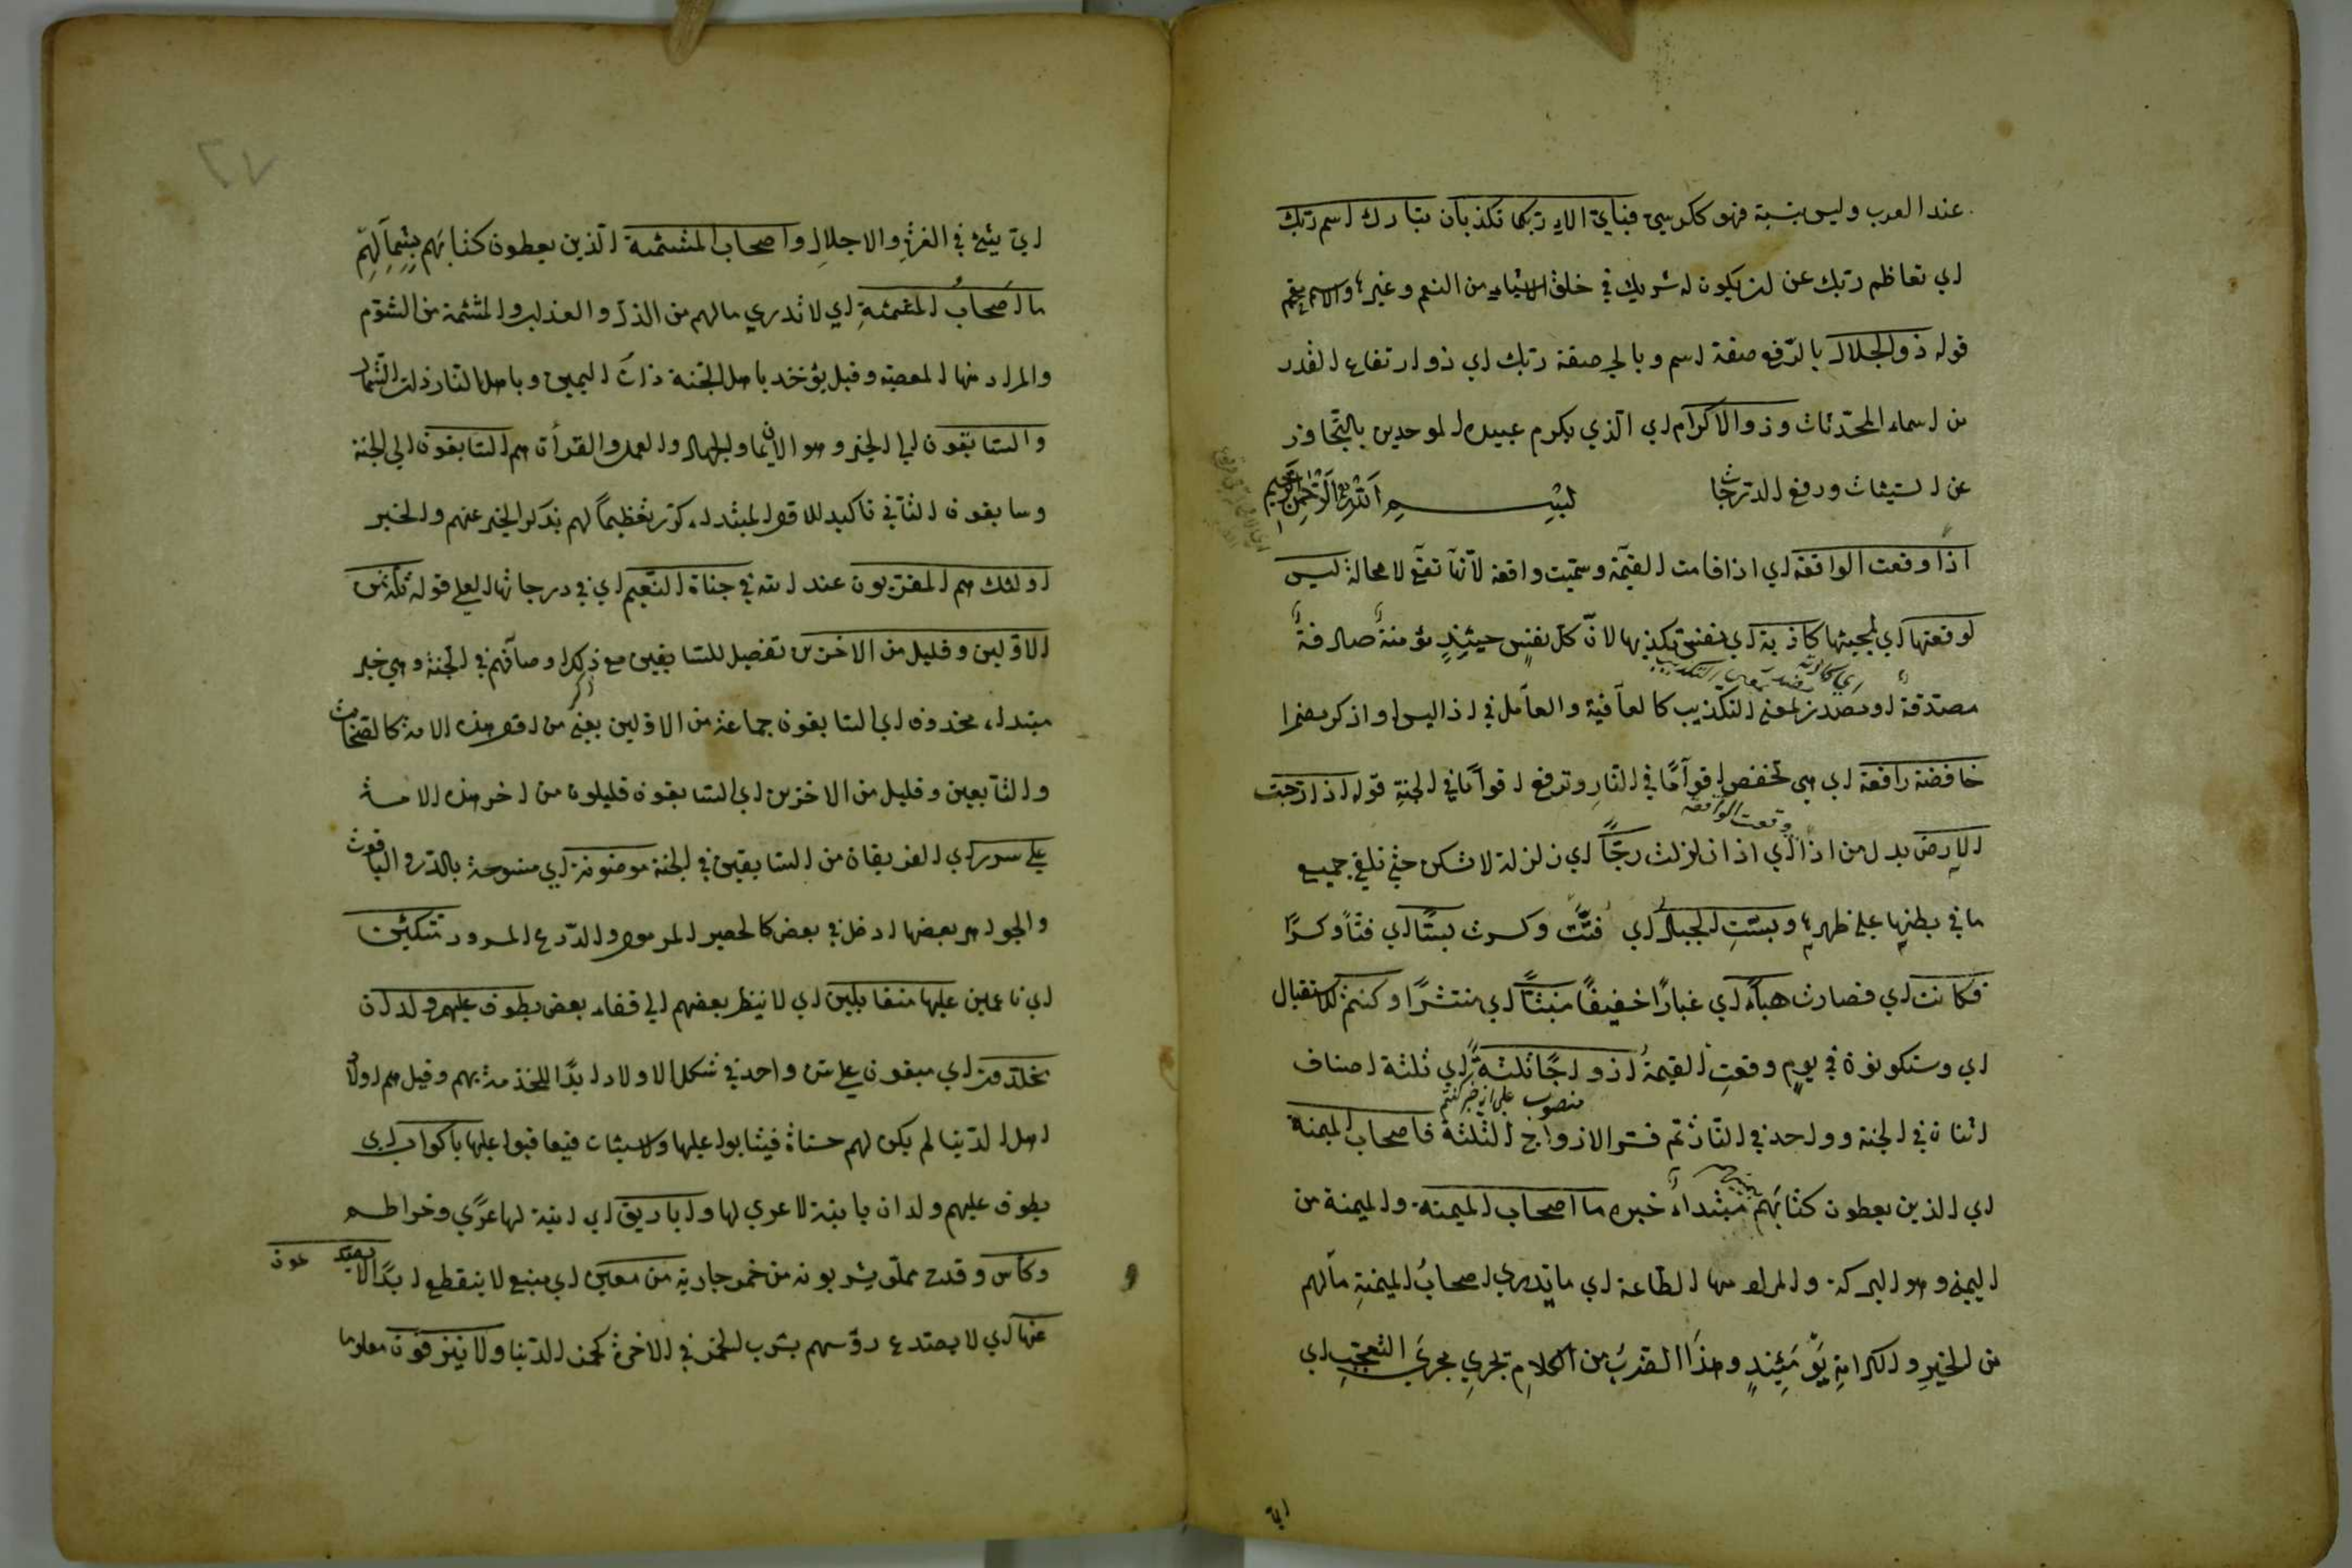 عند العرب وليس بنسبة فهو ككرسي فبايّ الاء ربكما تكذبان تبارك اسم ربّك
اي تعاظم ربّك عن ان يكون له شريك في خلق الاشياء من النعم وغيرها والاسم مقحم
قوله ذو الجلال بالرّفع صفة اسم وبالجر صفة ربّك اي ذو ارتفاع القدر
من اسماء المحدثات وذو الاكرام اي الّذي يكرم عبيده الموحدين بالتّجاوز
عن السّيئات ورفع الدّرجات بسم الله الرّحمن الرّحيم
اذا وقعت الواقعة اي اذا قامت القيٰمة وسمّيت واقعة لانّها تقع لا محالة ليس
لوقعتها اي لمجيئها كاذبة اي نفس تكذبها لانّ كلّ نفسٍ حينئذٍ مؤمنةٌ صادقةٌ
مصدّقة او مصدر بمعنى التكذيب كالعافية والعامل في اذا ليس او اذكر مضمرا
خافضة رافعة اي هي تخفض اقوامًا في النّار وترفع اقوامًا في الجنةِ قوله اذا رجّت
وقعت الواقعة
الارض بدل من اذا اي اذا زلزلت رجًّا اي زلزلة لا تسكن حتّى تلقي جميع
ما في بطنها على ظهرها وبسّتِ الجبال اي فتّت وكسرت بسًّا اي فتًّا وكسرًا
فكانت اي فصارت هباءً اي غبارًا خفيفًا منبثًّا اي منتشرًا وكنتم للاستقبال
اي وستكونون في يومٍ وقعتِ القيمةُ ازواجًا ثلثةً اي ثلثة اصناف
منصوب على انه خبر كنتم
اثنان في الجنة وواحد في النّار ثم فسّر الازواج الثلثة فاصحاب الميمنة
اي الذين يعطون كتابَهم مبتداء خبره ما اصحاب الميمنة والميمنة من
اليمن وهو البركة والمراد منها الطّاعة اي ما تدري اصحابُ الميمنةِ مالهم
من الخيرِ والكرامةِ يَوْمَئِذٍ وهذا الضّربُ من الكلامِ تجري مجرَى التعجّبِ اي
ايّ
ايّ شئ في العزّةِ والاجلالِ واصحاب المشئمة الّذين يعطون كتابَهم بِشِمالِهِم
ما اَصحابُ المشئمةِ اي لا تدري مالهم من الذلّ والعذاب والمشئمة من الشوم
والمراد منها المعصية وقيل يؤخذ باهل الجنة ذات اليمين وباهل النّار ذات الشّمال
والسّابقون الى الخير وهو الايمان والجهاد والعمل والقرأن هم السّابقون الى الجنة
وسابقون الثّاني تاكيد للاوّل المبتداء كرّر تعظيماً لهم بذكر الخبر عنهم والخبر
اولئك هم المقرّبون عند الله في جنّاة النّعيم اي في درجاتها العلى قوله ثلّة من
الاوّلين وقليل من الاخرين تفصيل للسّابقين مع ذكر اوصافهم في الجنة وهي خبر
مبتداء محذوف اي السّابقون جماعة من الاوّلين يعني من اوّل هذه الامة كالصّحابة
والتّابعين وقليل من الاخرين اي السّابقون قليلون من اخر هذه الامة
على سرر اي الفريقان من السّابقين في الجنة موضونة اي منسوجة بالدّر والياقوت
والجواهر بعضها ادخل في بعض كالحصير المرمول والدّرع المسرود متّكئين
اي ناعمين عليها متقابلين اي لا ينظر بعضهم الى قفاء بعض يطوف عليهم ولدان
مخلّدون اي مبقون على سن واحد في شكل الاولاد ابدًا للخدمة بهم وقيل هم اولاد
اهل الدّنيا لم يكن لهم حسناة فيثابوا عليها ولا سيئات فيعاقبوا عليها باكواب اي
يطوف عليهم ولدان بانية لا عرى لها واباريق اي انية لها عرًى وخراطم
وكأس وقدح مملوّ يشربونه من خمر جارية من معين اي منبع لا ينقطع ابدًا لا يصدعون
عنها اي لا يصدع رؤسهم بشرب الخمر في الاخرة كخمر الدّنيا ولا ينزفون معلوما